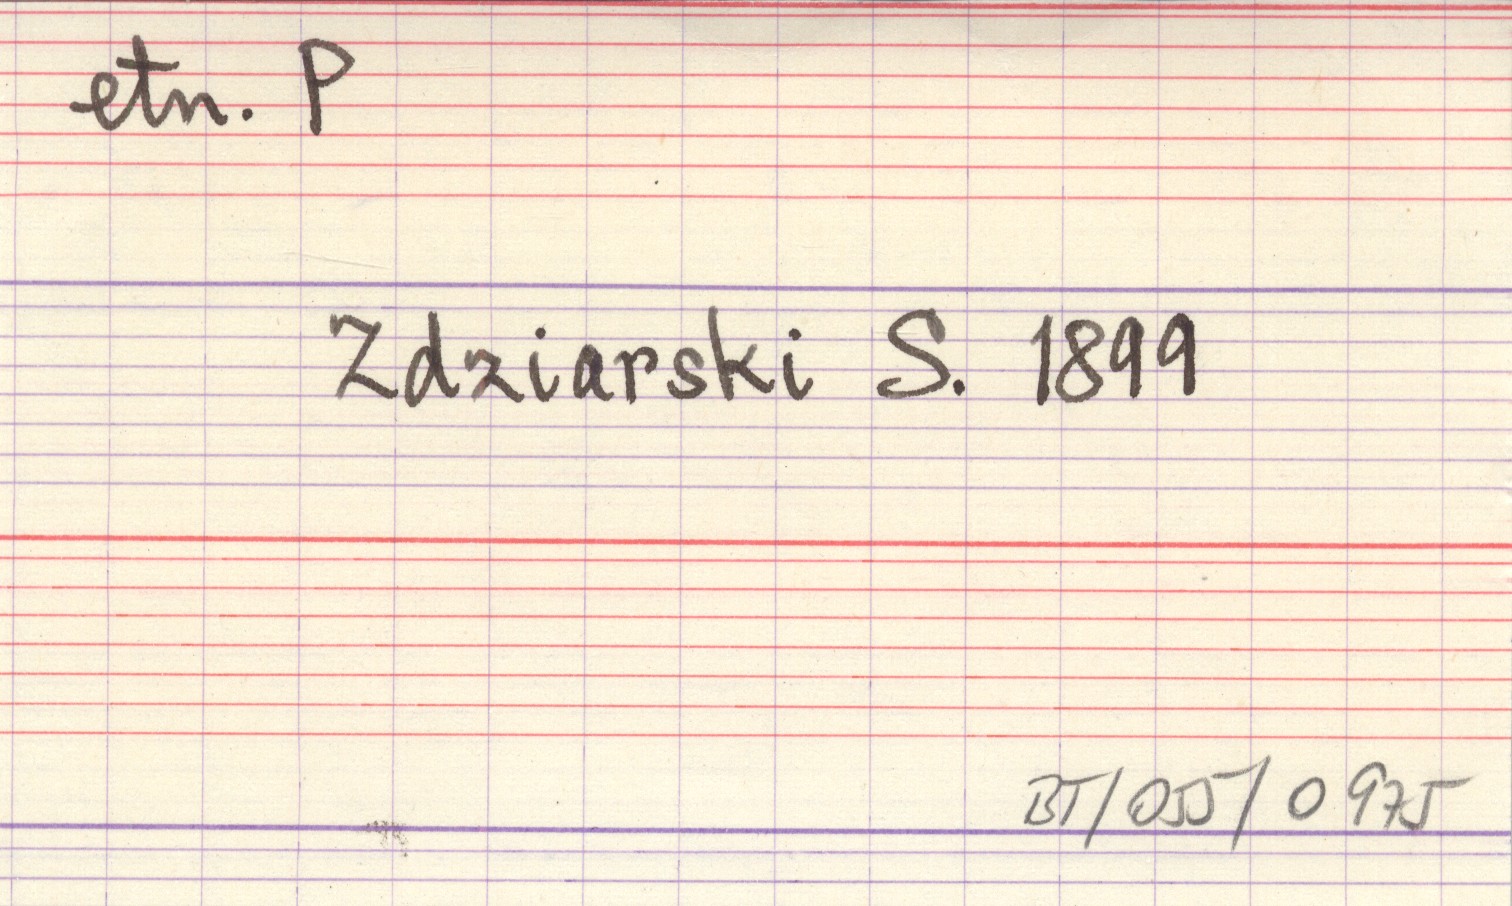 etn. P
Zdziarski S. 1899
BT/055/0975